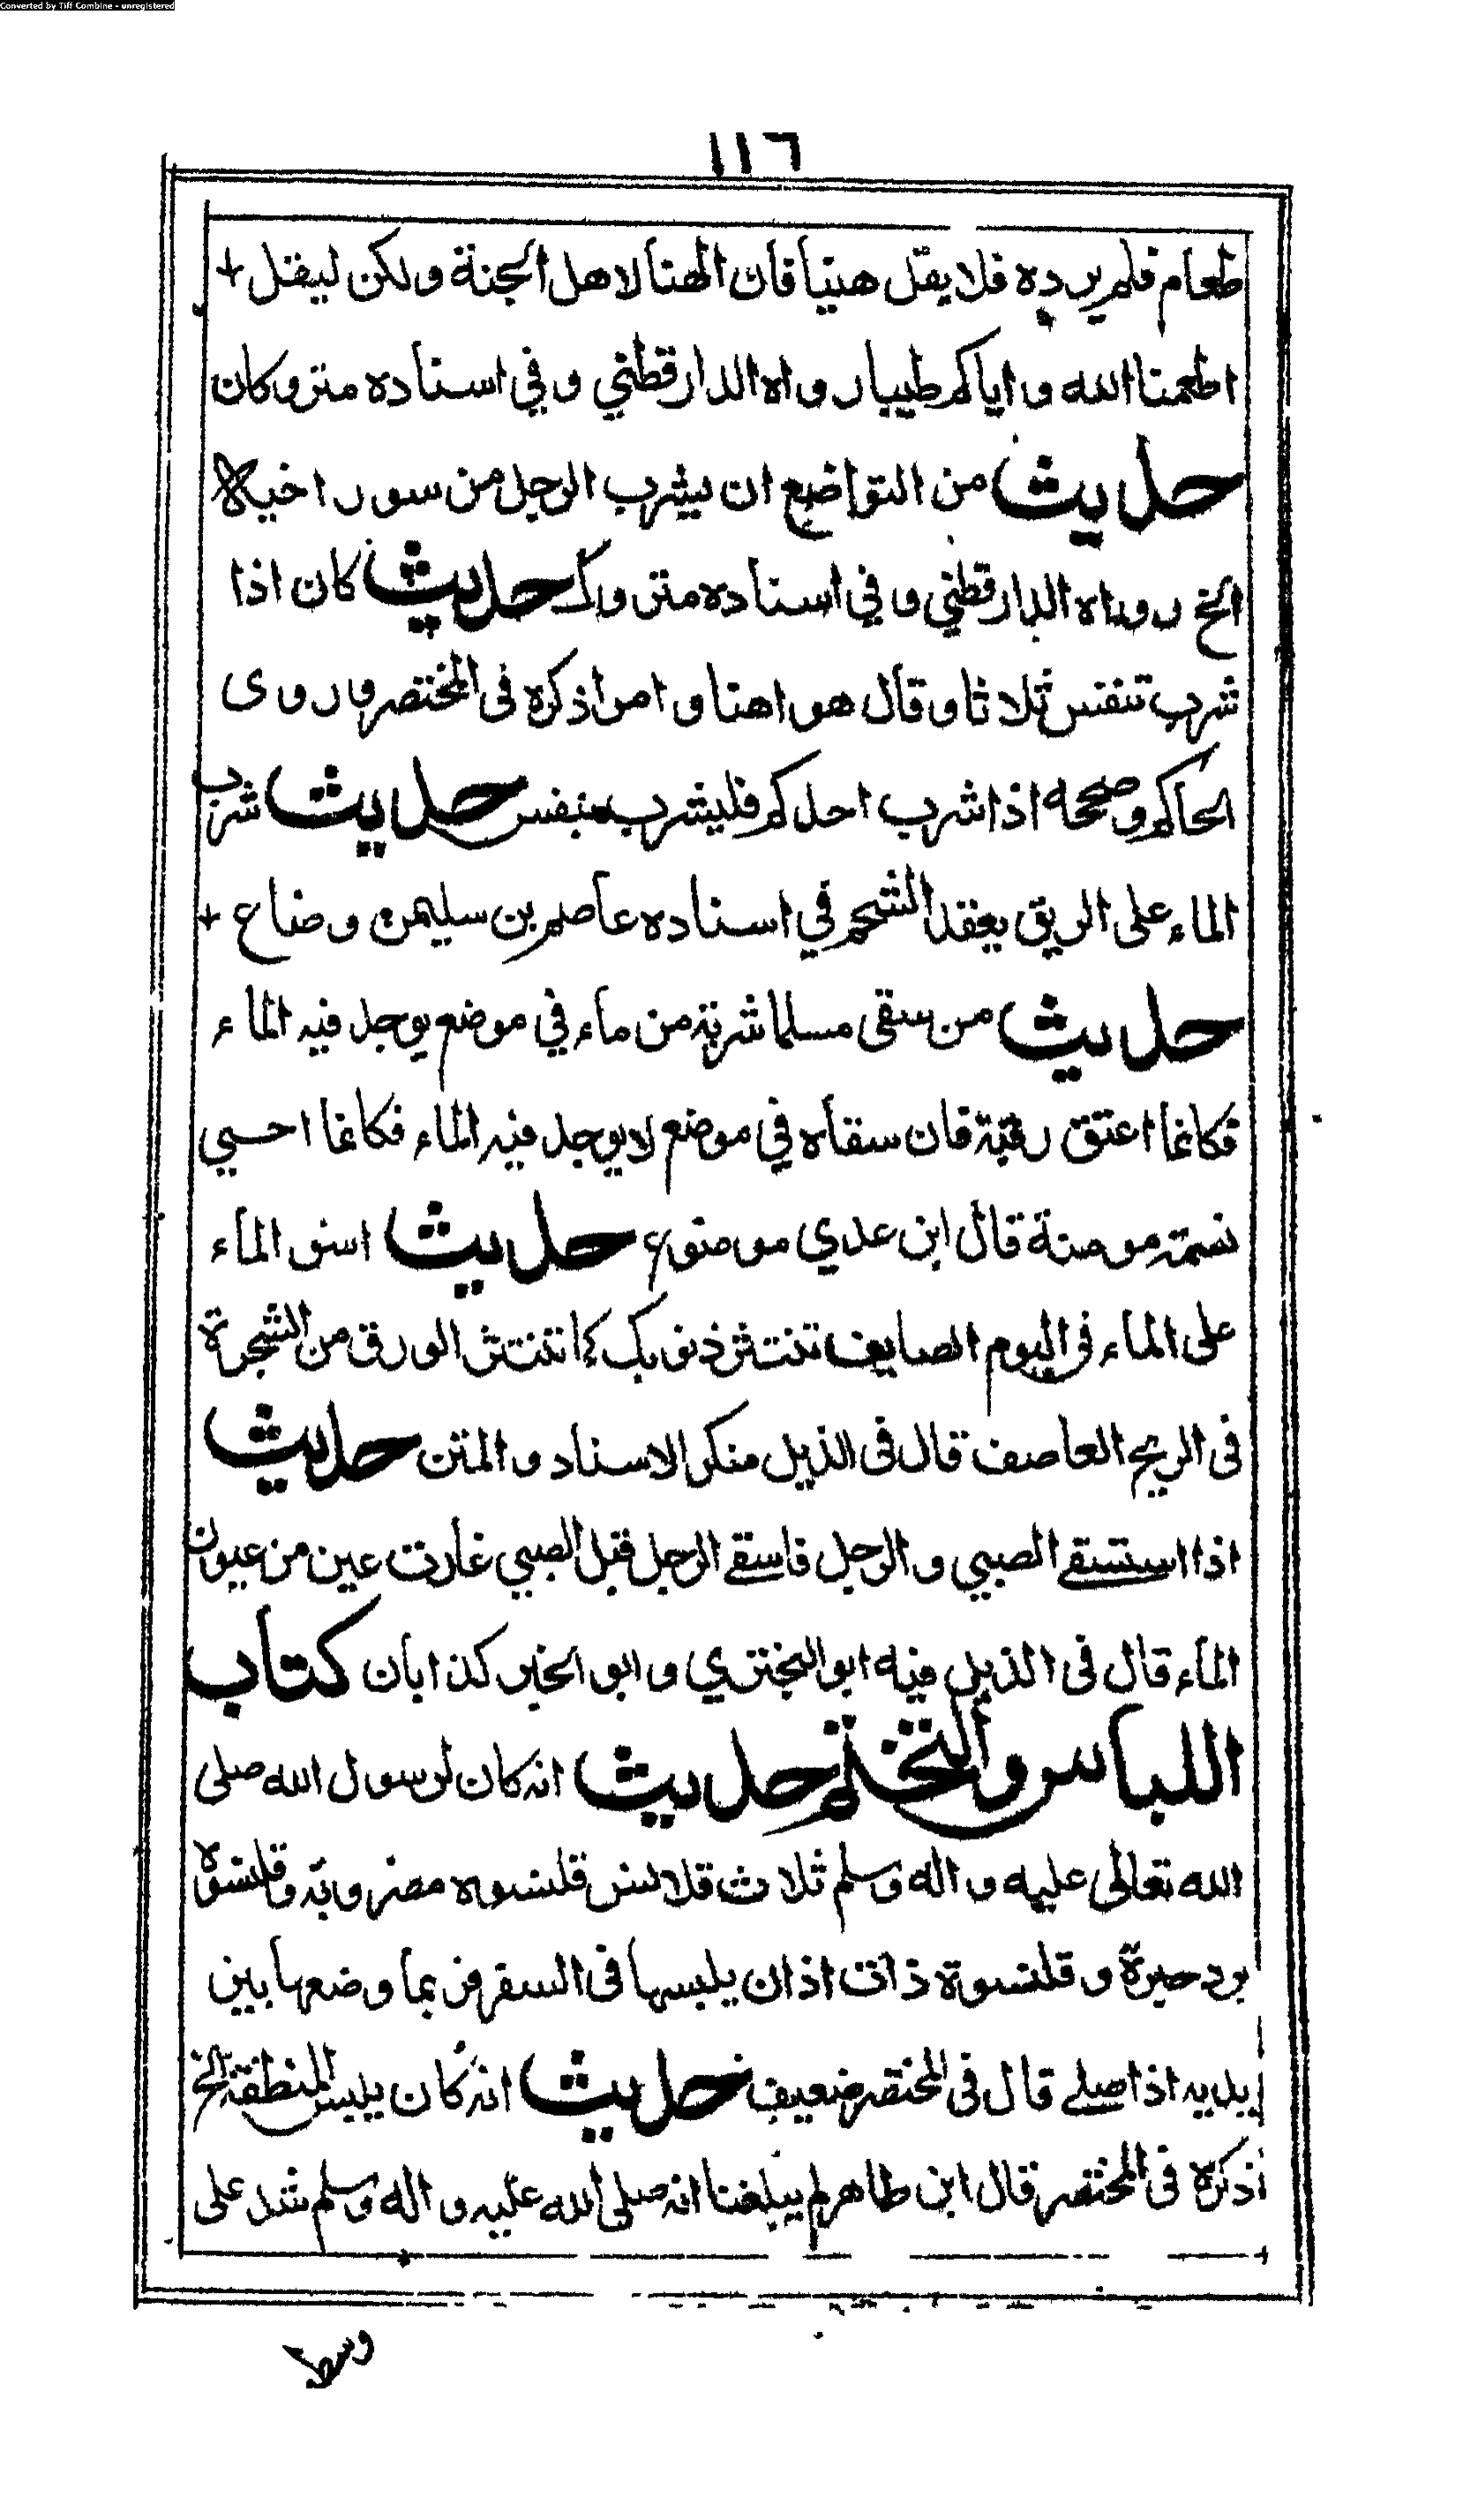 Converted by Tiff Combine - unregistered
١١٦
طعام فلم يرده فلا يقل هنيا فان الهنا لاهل الجنة ولكن ليقل +
اطعمنا الله واياكم طيبا رواه الدارقطني وفي اسناده متروكان
حديث من التواضع ان يشرب الرجل من سور اخيه
الخ رواه الدارقطني وفي اسناده متروك حديث كان اذا
شرب تنفس ثلاثا وقال هو اهنا وامرا ذكره فى المختصر وروى
الحاكم وصححه اذا شرب احدكم فليشرب بنفس حديث شرب
الماء على الريق يعقد الشحم في اسناده عاصم بن سليمن وضاع +
حديث من سقى مسلما شربة من ماء في موضع يوجد فيه الماء
فكانما اعتق رقبة فان سقاه في موضع لا يوجد فيه الماء فكانما احيي
نسمة مومنة قال ابن عدي موضوع حديث اسق الماء
على الماء فى اليوم الصايف تنتثر ذنوبك كما تنتثر الورق من الشجرة
فى الريح العاصف قال فى الذيل منكر الاسناد والمتن حديث
اذا استسقے الصبي والرجل فاسقے الرجل قبل الصبي غارت عين من عيون
الماء قال فى الذيل فيه ابو البختري وابو الخير كذابان كتاب
اللباس والتختم حديث انه كان لرسول الله صلى
الله تعالى عليه واله وسلم ثلاث قلانس قلنسوه مضروبة وقلنسوة
برد حبرة وقلنسوة ذات اذان يلبسها فى السفر فربما وضعها بين
يديه اذا صلے قال فى المختصر ضعيف حديث انه كان يلبس المنطقة الخ
ذكره فى المختصر قال ابن طاهر لم يبلغنا انه صلى الله عليه واله وسلم شد على
وسطه